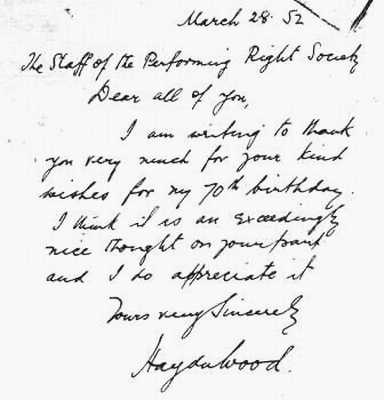 March 28. 52
The Staff of the Performing Right Society
Dear all of you,
I am writing to thank
you very much for your kind
wishes for my 70th birthday.
I think it is an exceedingly
nice thought on your part
and I do appreciate it
Yours very Sincerely
Haydn Wood.